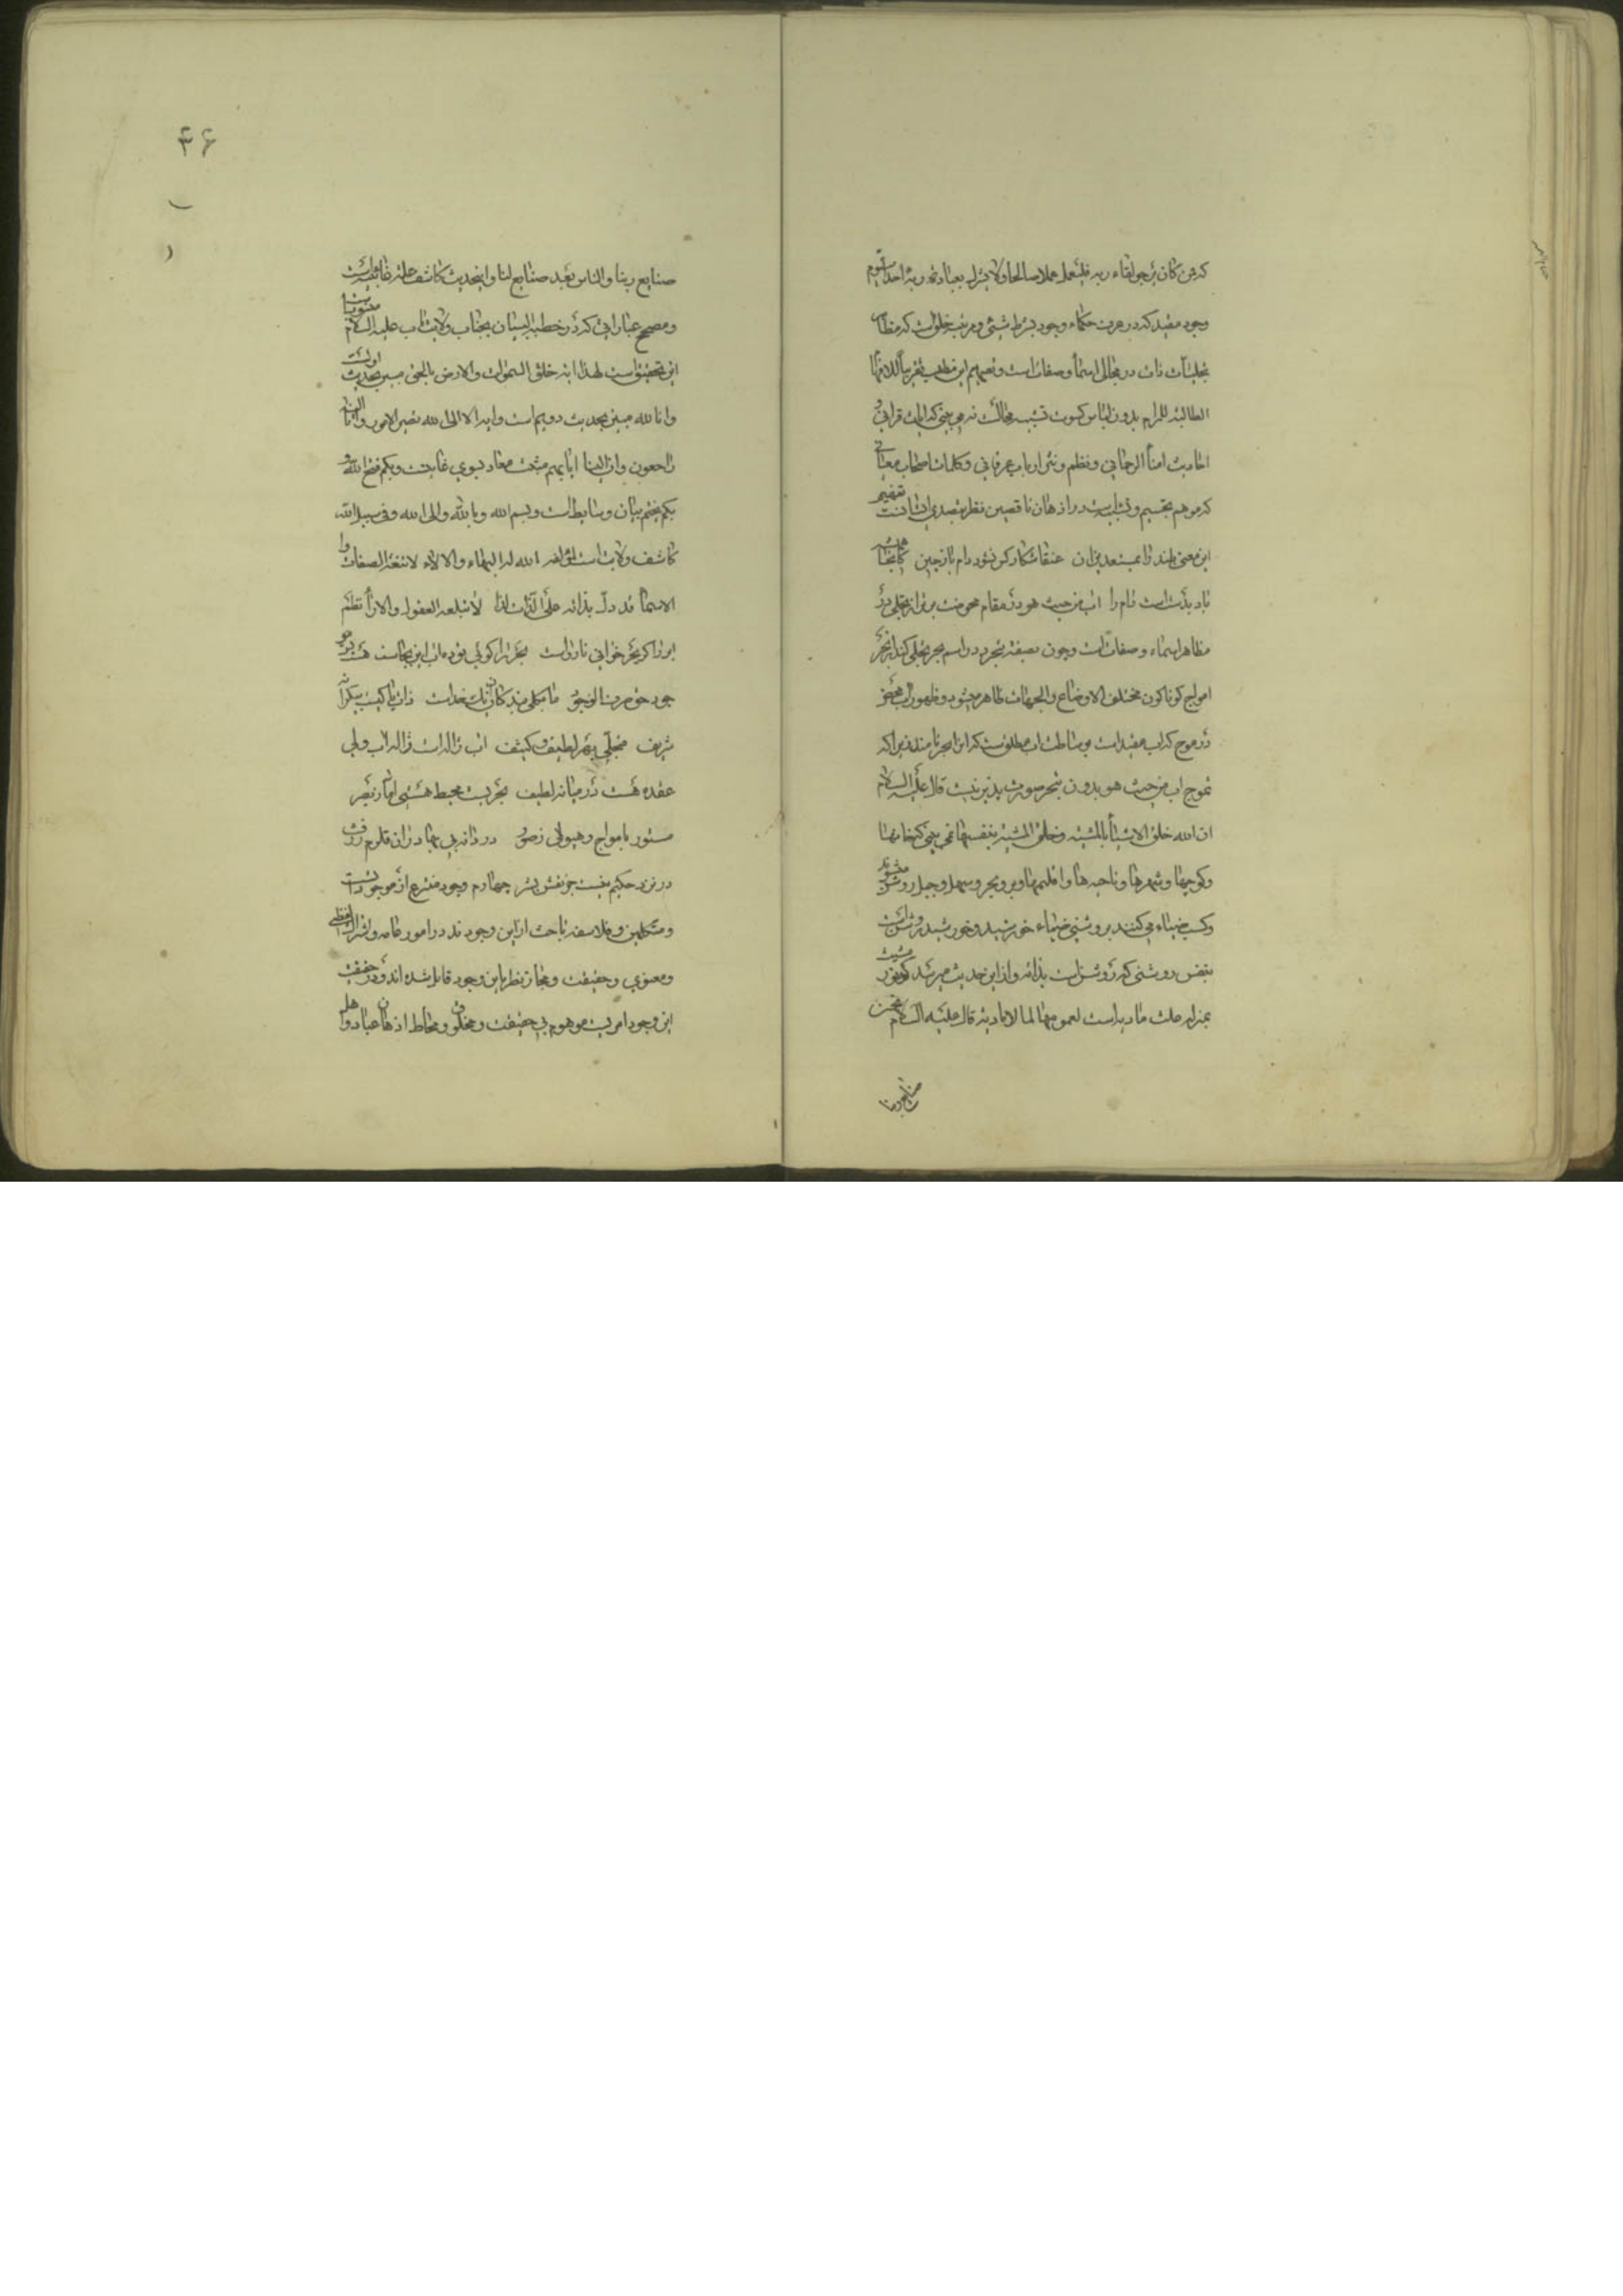 که من کان یرجو لقاء ربه فلیعمل عملا صالحا ولا یشرک بعبادة ربه احدا سیوم
وجود مقید که در عرف حکماء وجود بشرط شیئی و مرتبه خلق است که مظاهر
تجلیات ذات در مجالی اسما و صفات است و تفهیم این مطلب تقریبا للافهام
الطالبة للمرام بدون لباس کسوت تشبیه محالست نه می بینی که ایات قرانی و
احادیث امناء الرحمانی و نظم و نثر ارباب عرفانی و کلمات اصحاب معانی
که موهم تجسیم و تشبیه است در اذهان ناقصین نظر بتصدی ایشانست تفهیم
این معنی بلند را بمستعدین ان عنقا شکار کس نشود دام بازچین کاینجا همیشه
باد بدست است دام را اب من حیث هو در مقام محوضت بر تر از تجلی در
مظاهر اسماء و صفات است و چون بصفت تبحر در اسم بحر تجلی کند از بحر
امواج کوناکون مختلف الاوضاع والجهات ظاهر میشود و ظهور اب محض
در موج که اب مقید است بوساطت اب مطلق است که انرا بحر نامند زیرا که
تموج اب من حیث هو بدون تبحر صورت پذیر نیست قال علیه السلام
ان الله خلق الاشیاء بالمشیة و خلق المشیة بنفسها نمی بینی که خانها
و کوچها و شهرها و ناحیه ها و اقلیمها و بر و بحر و سهل و جبل روشن میشوند
و کسب ضیاء می کنند بروشنی ضیاء خورشید و خورشید روشن است
بنفس روشنی که روشن است بذاته و از این حدیث میرسد که نور مشیت
بمنزله علت مادیه است لعمومها لما لا مادیة قال علیه السلام نحن
صنایع ربنا
۴۶
صنایع ربنا والناس بعد صنایع لنا و اینحدیث کاشف علت غائیه است
و مصحح عباراتی که در خطبة البیان بجناب ولایت ماب علیه السلام منسوبست
این تحقیق است لهذا ایه خلق السموات والارض بالحق مبین حدیث اولست
و انا لله مبین حدیث دویم است و ایه الا الی الله تصیر الامور و انا الیه
راجعون و ان الینا ایابهم مثبت معاد بسوی غایت و بکم فتح الله و
بکم یختم بیان وسایط است و بسم الله و بالله و الی الله و فی سبیل الله
کاشف ولایت است لمؤلفه الله له البهاء والالاء لا تنعته الصفات و
الاسماء قد دل بذاته علی الذات لذا لا تبلعه العقول والاراء نظم
ابر را کر بحر خوانی نارواست بحر را کوئی بود ماء این بجاست هست
جود حق
شریف متجلی بهر لطیف و کثیف اب ژاله است ژاله اب ولی
عقده هست در میانه لطیف بحریست محیط هستی اما ز نظر
مستور بامواج و هیولی ز صور دردانه بی بها دران قلزم ژرف
در نزد حکیم نیست جز نقش بشر چهارم وجود منتزع از موجوداتست
و متکلمین و فلاسفه باحث از این وجودند در امور عامه و اشتراک لفظی
و معنوی و حقیقت و مجاز نظر باین وجود قایل شده اند و در حقیقت
این وجود امریست موهوم بی حقیقت و مخلوق و محاط اذهان عباد و اهل